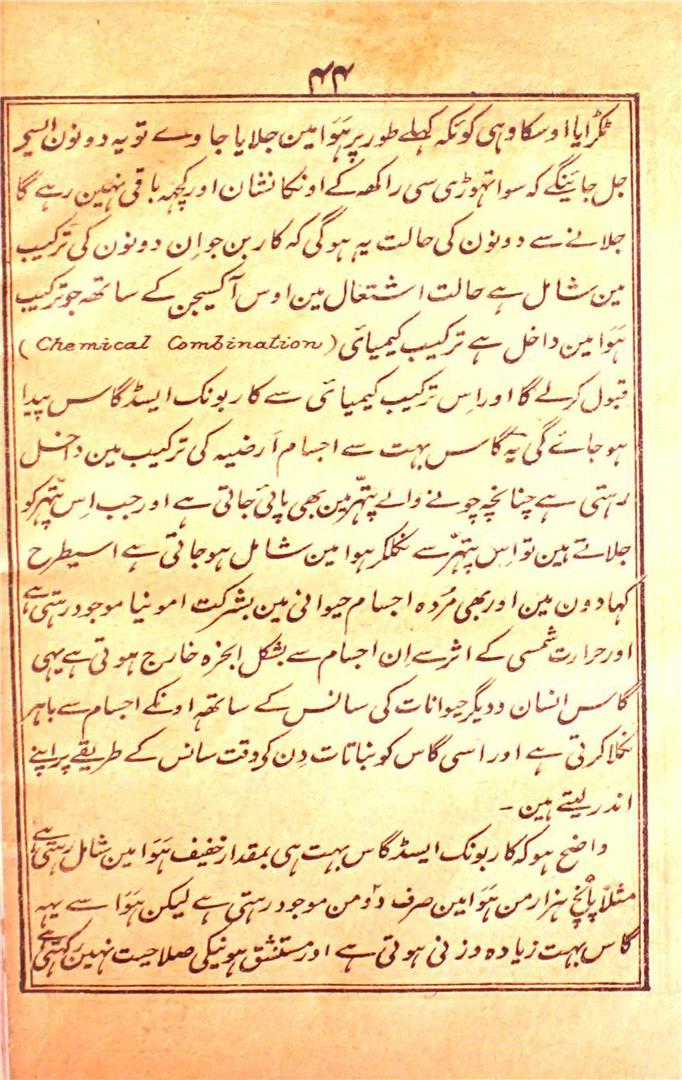 ۴۴
ٹکڑایا اوسکا وہی کوئکہ کھلے طور پر ہَوا مین جلایا جاوے تو یہ دونون
جل جائینگے کہ سوا تہوڑی سی راکھ کے اونکا نشان اور کچہہ باقی نہین رہے گا
جلانے سے دونون کی حالت یہ ہوگی کہ کاربن جو اِن دونون کی ترکیب
مین شامل ہے حالت اشتعال مین اوس آکسیجن کے ساتھ جو ترکیب
ہَوا مین داخل ہے ترکیب کیمیائی (Chemical Combination)
قبول کرلے گا اور اِس ترکیب کیمیائی سے کاربونک ایسڈ گاس پیدا
ہوجائے گی یہ گاس بہت سے اجسام اَرضیہ کی ترکیب مین داخل
رہتی ہے چنانچہ چونے والے پتّہر مین بھی پائی جاتی ہے اور جب اِس پتّہر کو
جلاتے ہین تو اِس پتّہر سے نکلکر ہوا مین شامل ہوجاتی ہے اسیطرح
کہادون مین اور بھی مُردہ اجسام حیوانی مین بشرکت امونیا موجود رہتی ہے
اور حرارت شمسی کے اثر سے اِن اجسام سے بشکل ابخرہ خارج ہوتی ہے یہی
گاس انسان و دیگر حیوانات کی سانس کے ساتھہ اونکے اجسام سے باہر
نکلا کرتی ہے اور اسی گاس کو نباتات دِن کی وقت سانس کے طریقے پر اپنے
اندر لیتے ہین ۔
واضح ہو کہ کاربونک ایسڈ گاس بہت ہی بمقدار خفیف ہَوا مین شامل رہتی ہے
مثلاً پانچ ہزار من ہَوا مین صرف دو من موجود رہتی ہے لیکن ہَوا سے یہہ
گاس بہت زیادہ وزنی ہوتی ہے اور مستنشق ہونیکی صلاحیت نہین رکہتی ہے